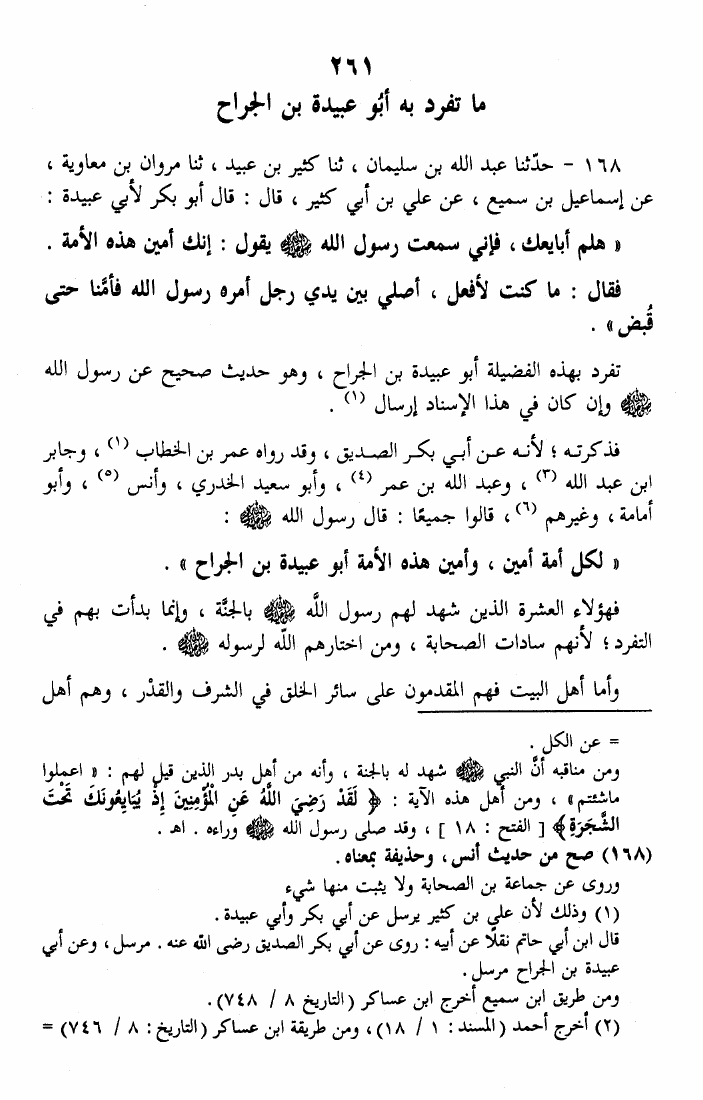 ٢٦١
ما تفرد به أبُو عبيدة بن الجراح
١٦٨ - حدّثنا عبد الله بن سليمان ، ثنا كثير بن عبيد ، ثنا مروان بن معاوية ،
عن إسماعيل بن سميع ، عن علي بن أبي كثير ، قال : قال أبو بكر لأبي عبيدة :
« هلم أبايعك ، فإني سمعت رسول الله ﷺ يقول : إنك أمين هذه الأمة .
فقال : ما كنت لأفعل ، أصلي بين يدي رجل أمره رسول الله فأمَّنا حتى
قُبض» .
تفرد بهذه الفضيلة أبو عبيدة بن الجراح ، وهو حديث صحيح عن رسول الله
ﷺ وإن كان في هذا الإسناد إرسال (١) .
فذكرته ؛ لأنه عن أبي بكر الصديق ، وقد رواه عمر بن الخطاب (١) ، وجابر
ابن عبد الله (٣) ، وعبد الله بن عمر (٤) ، وأبو سعيد الخدري ، وأنس (٥) ، وأبو
أمامة ، وغيرهم (٦) ، قالوا جميعًا : قال رسول الله ﷺ :
« لكل أمة أمين ، وأمين هذه الأمة أبو عبيدة بن الجراح » .
فهؤلاء العشرة الذين شهد لهم رسول اللَّه ﷺ بالجنَّة ، وإنما بدأت بهم في
التفرد ؛ لأنهم سادات الصحابة ، ومن اختارهم اللّه لرسوله ﷺ .
وأما أهل البيت فهم المقدمون على سائر الخلق في الشرف والقدْر ، وهم أهل
= عن الكل .
ومن مناقبه أنَّ النبي ﷺ شهد له بالجنة ، وأنه من أهل بدر الذين قيل لهم : « اعملوا
ماشئتم» ، ومن أهل هذه الآية : ﴿ لَقَدْ رَضِيَ اللَّهُ عَنِ الْمُؤْمِنِينَ إِذْ يُبَايِعُونَكَ تَحْتَ
الشَّجَرَةِ ﴾ [ الفتح : ١٨ ] ، وقد صلى رسول الله ﷺ وراءه . اهـ .
(١٦٨) صح من حديث أنس ، وحذيفة بمعناه.
وروى عن جماعة بن الصحابة ولا يثبت منها شيء
(١) وذلك لأن علي بن كثير يرسل عن أبي بكر وأبي عبيدة .
قال ابن أبي حاتم نقلًا عن أبيه : روى عن أبي بكر الصديق رضى الله عنه . مرسل ، وعن أبي
عبيدة بن الجراح مرسل .
ومن طريق ابن سميع أخرج ابن عساكر (التاريخ ٨ / ٧٤٨).
(٢) أخرج أحمد (المسند : ١ / ١٨)، ومن طريقة ابن عساكر (التاريخ : ٨ / ٧٤٦) =